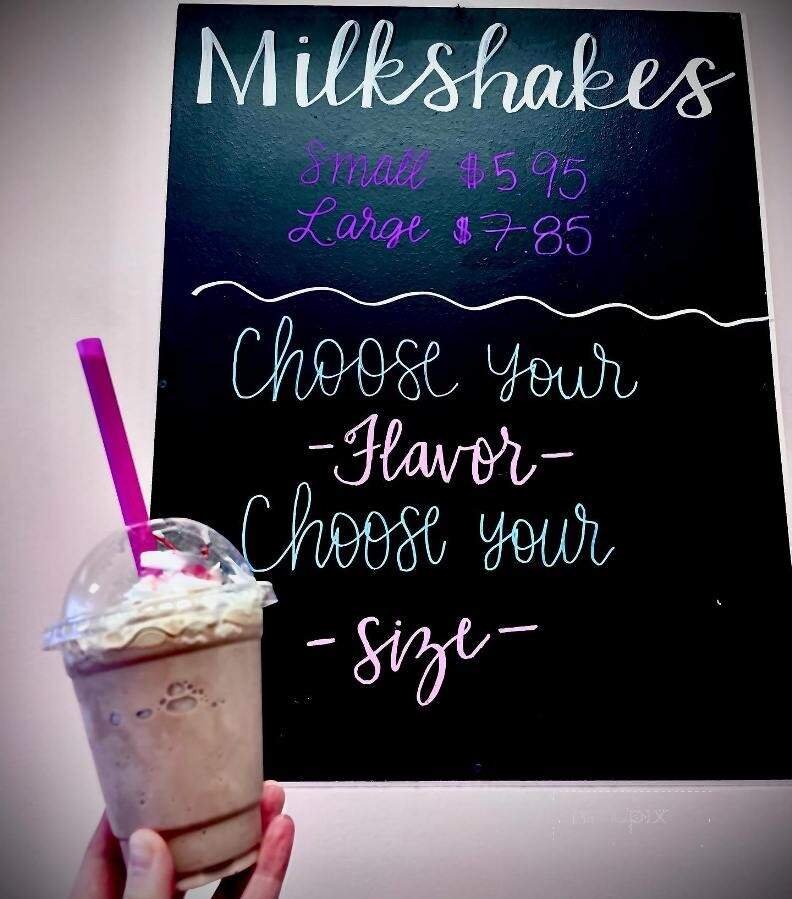 Milkshakes
Small $5.95
Large $7.85
Choose your
-Flavor-
Choose your
-Size-